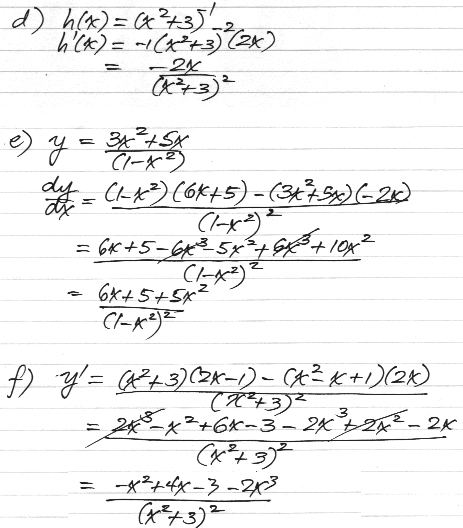 d) h(x) = (x²+3)⁻¹
h'(x) = -1(x²+3)⁻²(2x)
= -2x/(x²+3)²
e) y = 3x²+5x/(1-x²)
dy/dx = (1-x²)(6x+5)-(3x²+5x)(-2x)/(1-x²)²
= 6x+5-6x³-5x²+6x³+10x²/(1-x²)²
= 6x+5+5x²/(1-x²)²
f) y' = (x²+3)(2x-1)-(x²-x+1)(2x)/(x²+3)²
= 2x³-x²+6x-3-2x³+2x²-2x/(x²+3)²
= -x²+4x-3-2x³/(x²+3)²